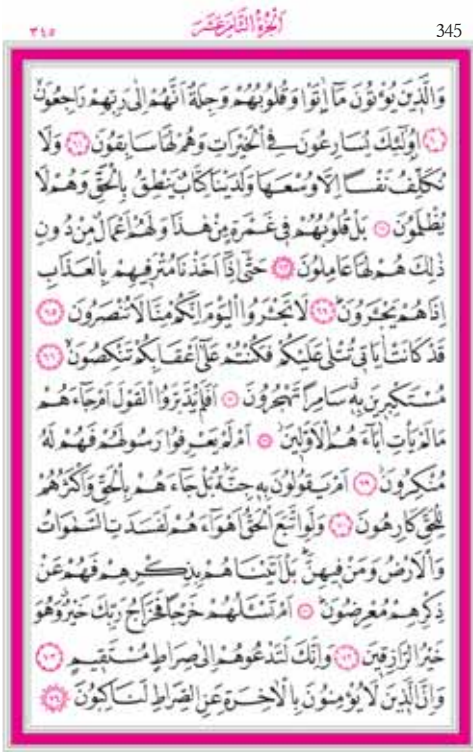 ٣٤٥ اَلْجُزْءُ الثَّامِنَ عَشَرَ 345
وَالَّذ۪ينَ يُؤْتُونَ مَٓا اٰتَوْا وَقُلُوبُهُمْ وَجِلَةٌ اَنَّهُمْ اِلٰى رَبِّهِمْ رَاجِعُونَۙ
﴿٦٠﴾ اُو۬لٰٓئِكَ يُسَارِعُونَ فِي الْخَيْرَاتِ وَهُمْ لَهَا سَابِقُونَ ﴿٦١﴾ وَلَا
نُكَلِّفُ نَفْسًا اِلَّا وُسْعَهَا وَلَدَيْنَا كِتَابٌ يَنْطِقُ بِالْحَقِّ وَهُمْ لَا
يُظْلَمُونَ ﴿٦٢﴾ بَلْ قُلُوبُهُمْ ف۪ي غَمْرَةٍ مِنْ هٰذَا وَلَهُمْ اَعْمَالٌ مِنْ دُونِ
ذٰلِكَ هُمْ لَهَا عَامِلُونَ ﴿٦٣﴾ حَتّٰٓى اِذَٓا اَخَذْنَا مُتْرَف۪يهِمْ بِالْعَذَابِ
اِذَا هُمْ يَجْـَٔرُونَۜ ﴿٦٤﴾ لَا تَجْـَٔرُوا الْيَوْمَ اِنَّكُمْ مِنَّا لَا تُنْصَرُونَ ﴿٦٥﴾
قَدْ كَانَتْ اٰيَات۪ي تُتْلٰى عَلَيْكُمْ فَكُنْتُمْ عَلٰٓى اَعْقَابِكُمْ تَنْكِصُونَۙ ﴿٦٦﴾
مُسْتَكْبِر۪ينَ بِه۪ۗ سَامِرًا تَهْجُرُونَ ﴿٦٧﴾ اَفَلَمْ يَدَّبَّرُوا الْقَوْلَ اَمْ جَٓاءَهُمْ
مَا لَمْ يَأْتِ اٰبَٓاءَهُمُ الْاَوَّل۪ينَۘ ﴿٦٨﴾ اَمْ لَمْ يَعْرِفُوا رَسُولَهُمْ فَهُمْ لَهُ
مُنْكِرُونَۘ ﴿٦٩﴾ اَمْ يَقُولُونَ بِه۪ جِنَّةٌۜ بَلْ جَٓاءَهُمْ بِالْحَقِّ وَاَكْثَرُهُمْ
لِلْحَقِّ كَارِهُونَ ﴿٧٠﴾ وَلَوِ اتَّبَعَ الْحَقُّ اَهْوَٓاءَهُمْ لَفَسَدَتِ السَّمٰوَاتُ
وَالْاَرْضُ وَمَنْ ف۪يهِنَّۜ بَلْ اَتَيْنَاهُمْ بِذِكْرِهِمْ فَهُمْ عَنْ
ذِكْرِهِمْ مُعْرِضُونَۜ ﴿٧١﴾ اَمْ تَسْـَٔلُهُمْ خَرْجًا فَخَرَاجُ رَبِّكَ خَيْرٌۗ وَهُوَ
خَيْرُ الرَّازِق۪ينَ ﴿٧٢﴾ وَاِنَّكَ لَتَدْعُوهُمْ اِلٰى صِرَاطٍ مُسْتَق۪يمٍ ﴿٧٣﴾
وَاِنَّ الَّذ۪ينَ لَا يُؤْمِنُونَ بِالْاٰخِرَةِ عَنِ الصِّرَاطِ لَنَاكِبُونَ ﴿٧٤﴾